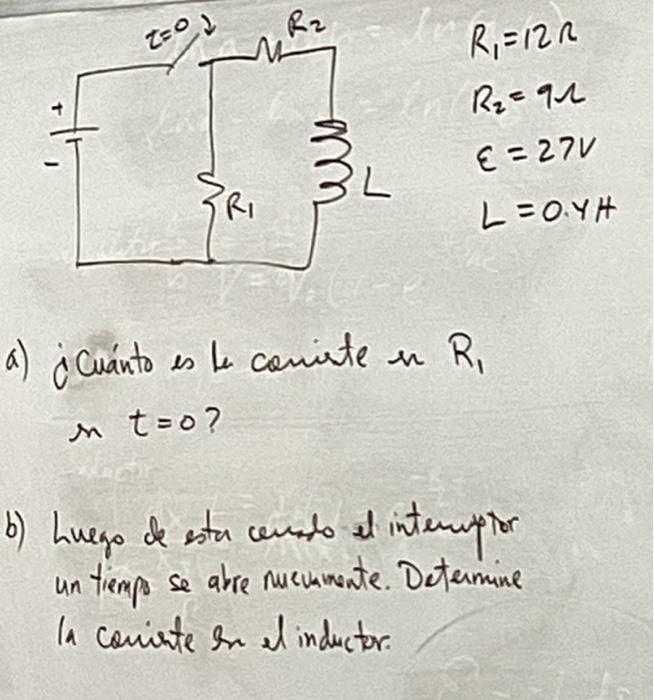 t=0
R2
R1=12Ω
R2=9Ω
ε=27V
L=0.4H
+
-
R1
L
a) ¿Cuánto es la corriente en R1
en t=0?
b) Luego de estar cerrado el interruptor
un tiempo se abre nuevamente. Determine
la corriente en el inductor.